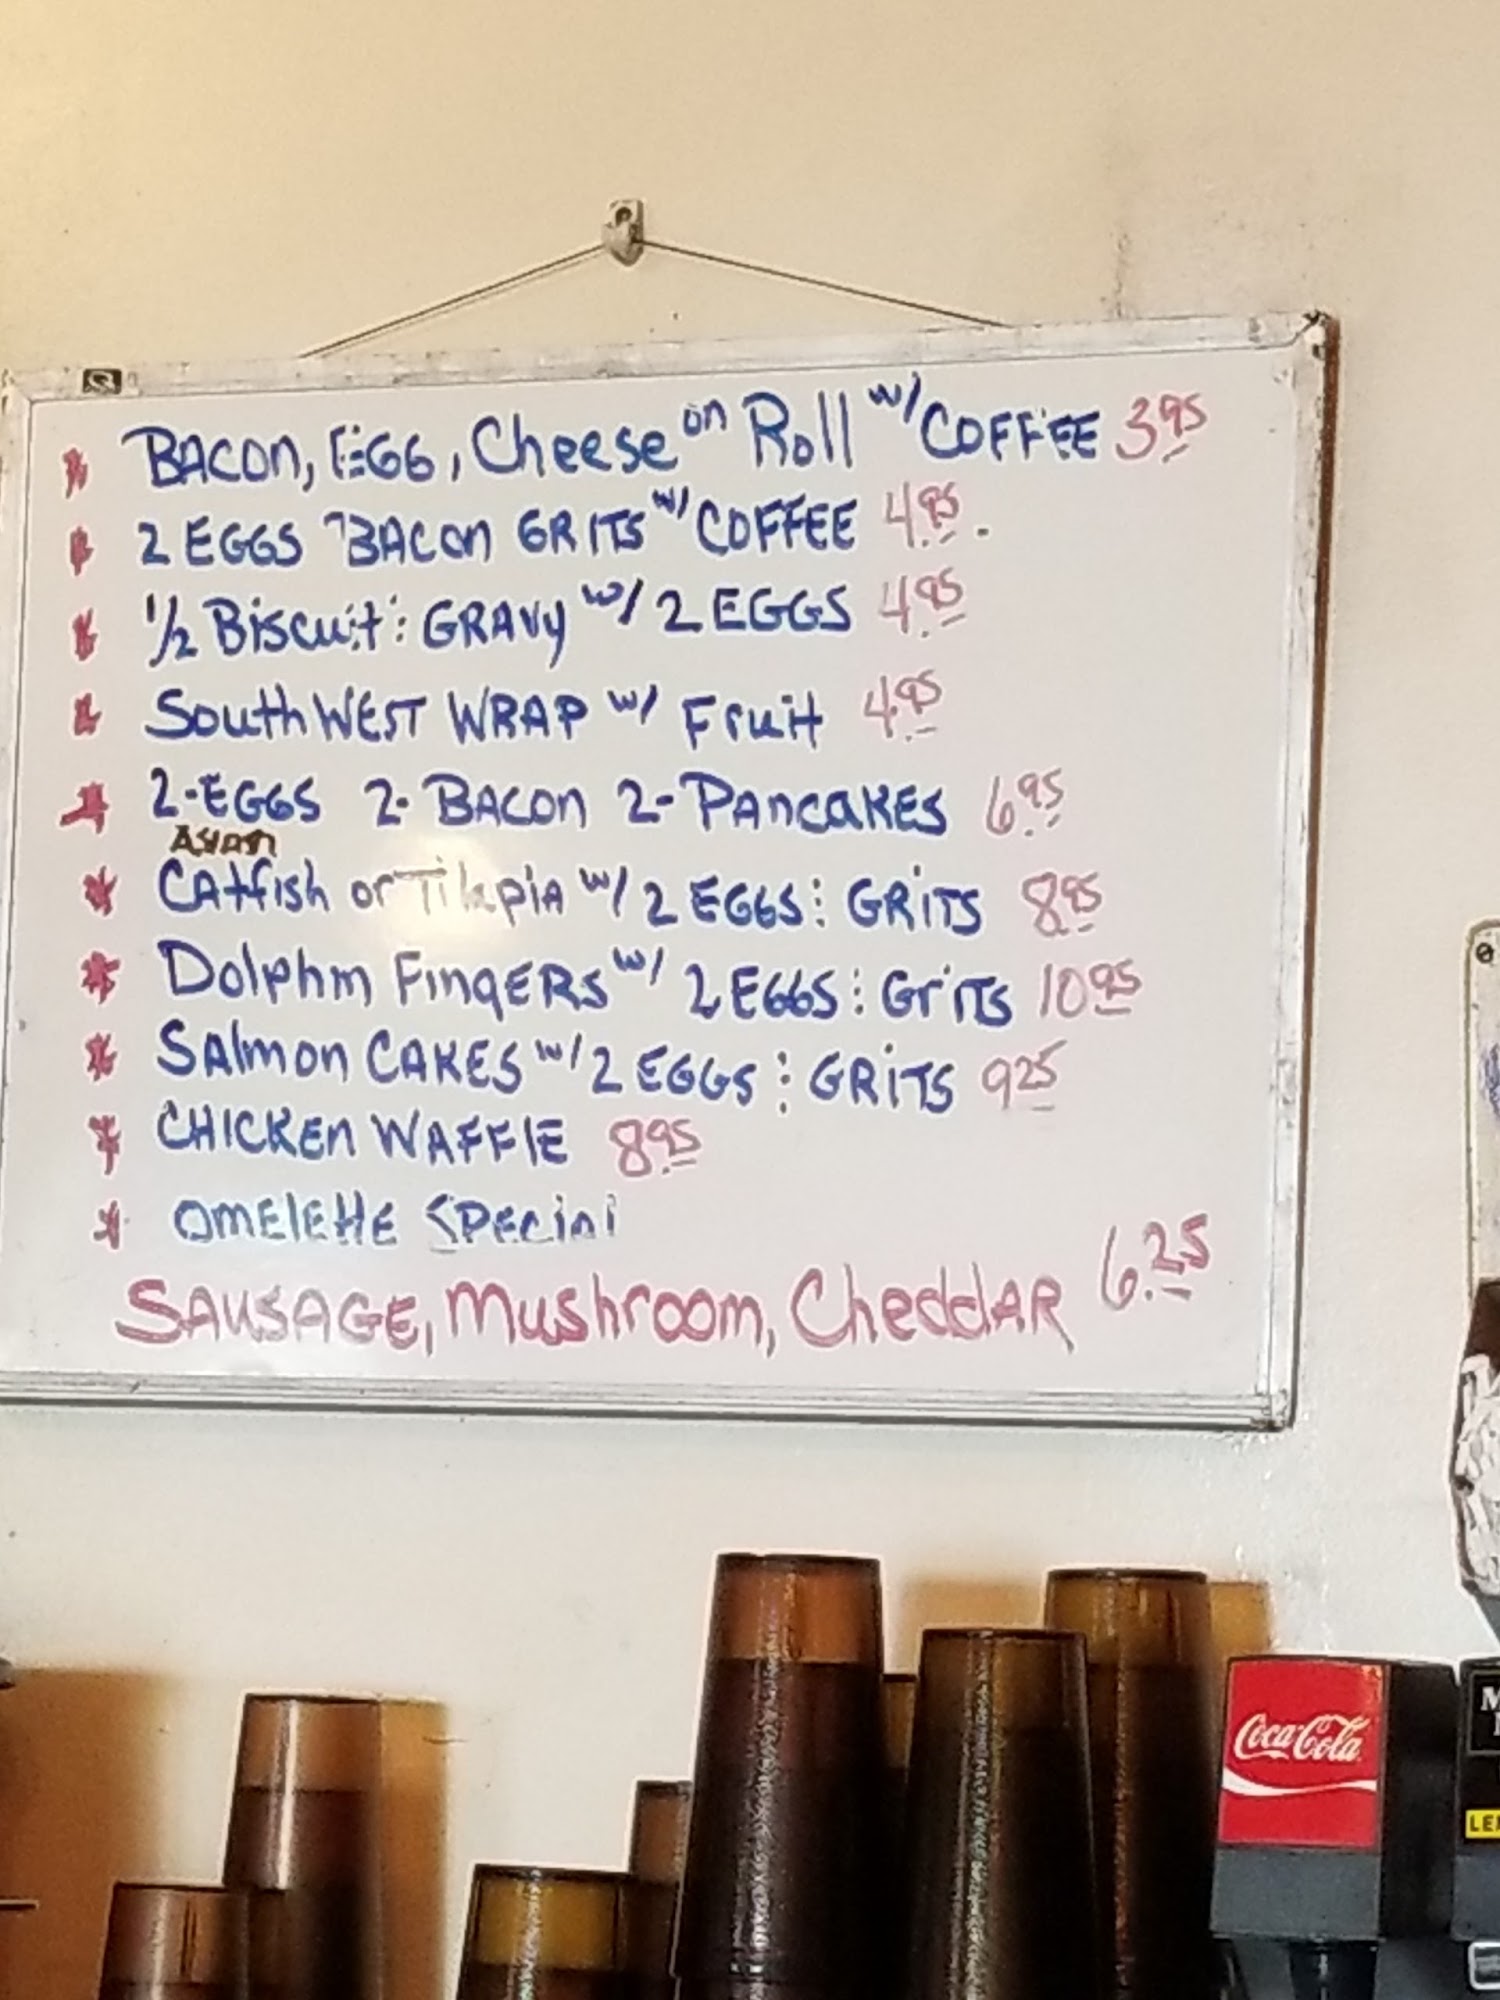 BACON, EGG, Cheese on Roll w/ COFFEE 3.95
2 EGGS BACON GRITS w/ COFFEE 4.95.
1/2 Biscuit : GRAVY w/ 2 EGGS 4.95
SouthWEST WRAP w/ Fruit 4.95
2-EGGS 2-BACON 2-PancaKES 6.95
ASIAN
CAtfish or TilapiA w/ 2 EGGS : GRiTS 8.95
Dolphin FingERS w/ 2 EGGS : GriTS 10.95
SAlmon CAKES w/ 2 EGGS : GRiTS 9.25
CHICKEN WAFFlE 8.95
OMElEttE SPEcial
SAUSAGE, Mushroom, CheddAR 6.25
Coca-Cola